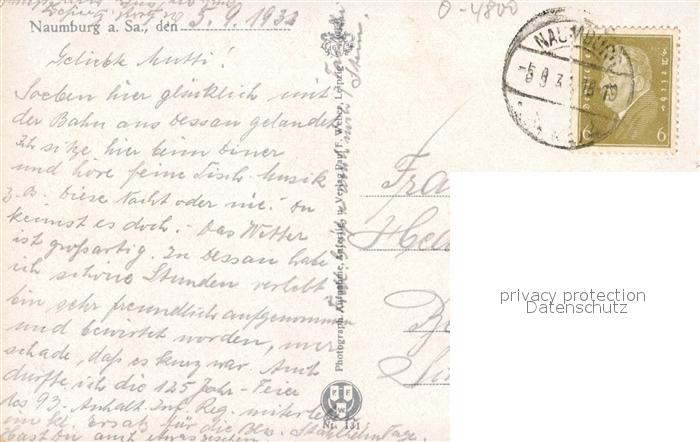 5.9.1932
O-4800
Naumburg a. Sa., den
Geliebte Mutti!
Soeben hier glücklich mit
der Bahn aus Dessau gelandet
Ich sitze hier beim Diner
und höre feine Tisch-Musik
z.B. Diese Nacht oder nie. Du
kennst es doch. Das Wetter
ist großartig. In Dessau habe
ich schöne Stunden verlebt
bin sehr freundlich aufgenommen
und bewirtet worden, nur
schade, daß es kurz war. Auch
durfte ich die 125 Jahr-Feier
des 93. Anhalt. Inf. Reg. miterleben
im kl. Ersatz für die Stahlhelmtage.
Hast Du auch etwas
Photograph. Aufnahme, Anfertig. u. Verlag Paul F. Weber, Leipzig
Nr. 131
NAUMBURG
6 6
privacy protection
Datenschutz